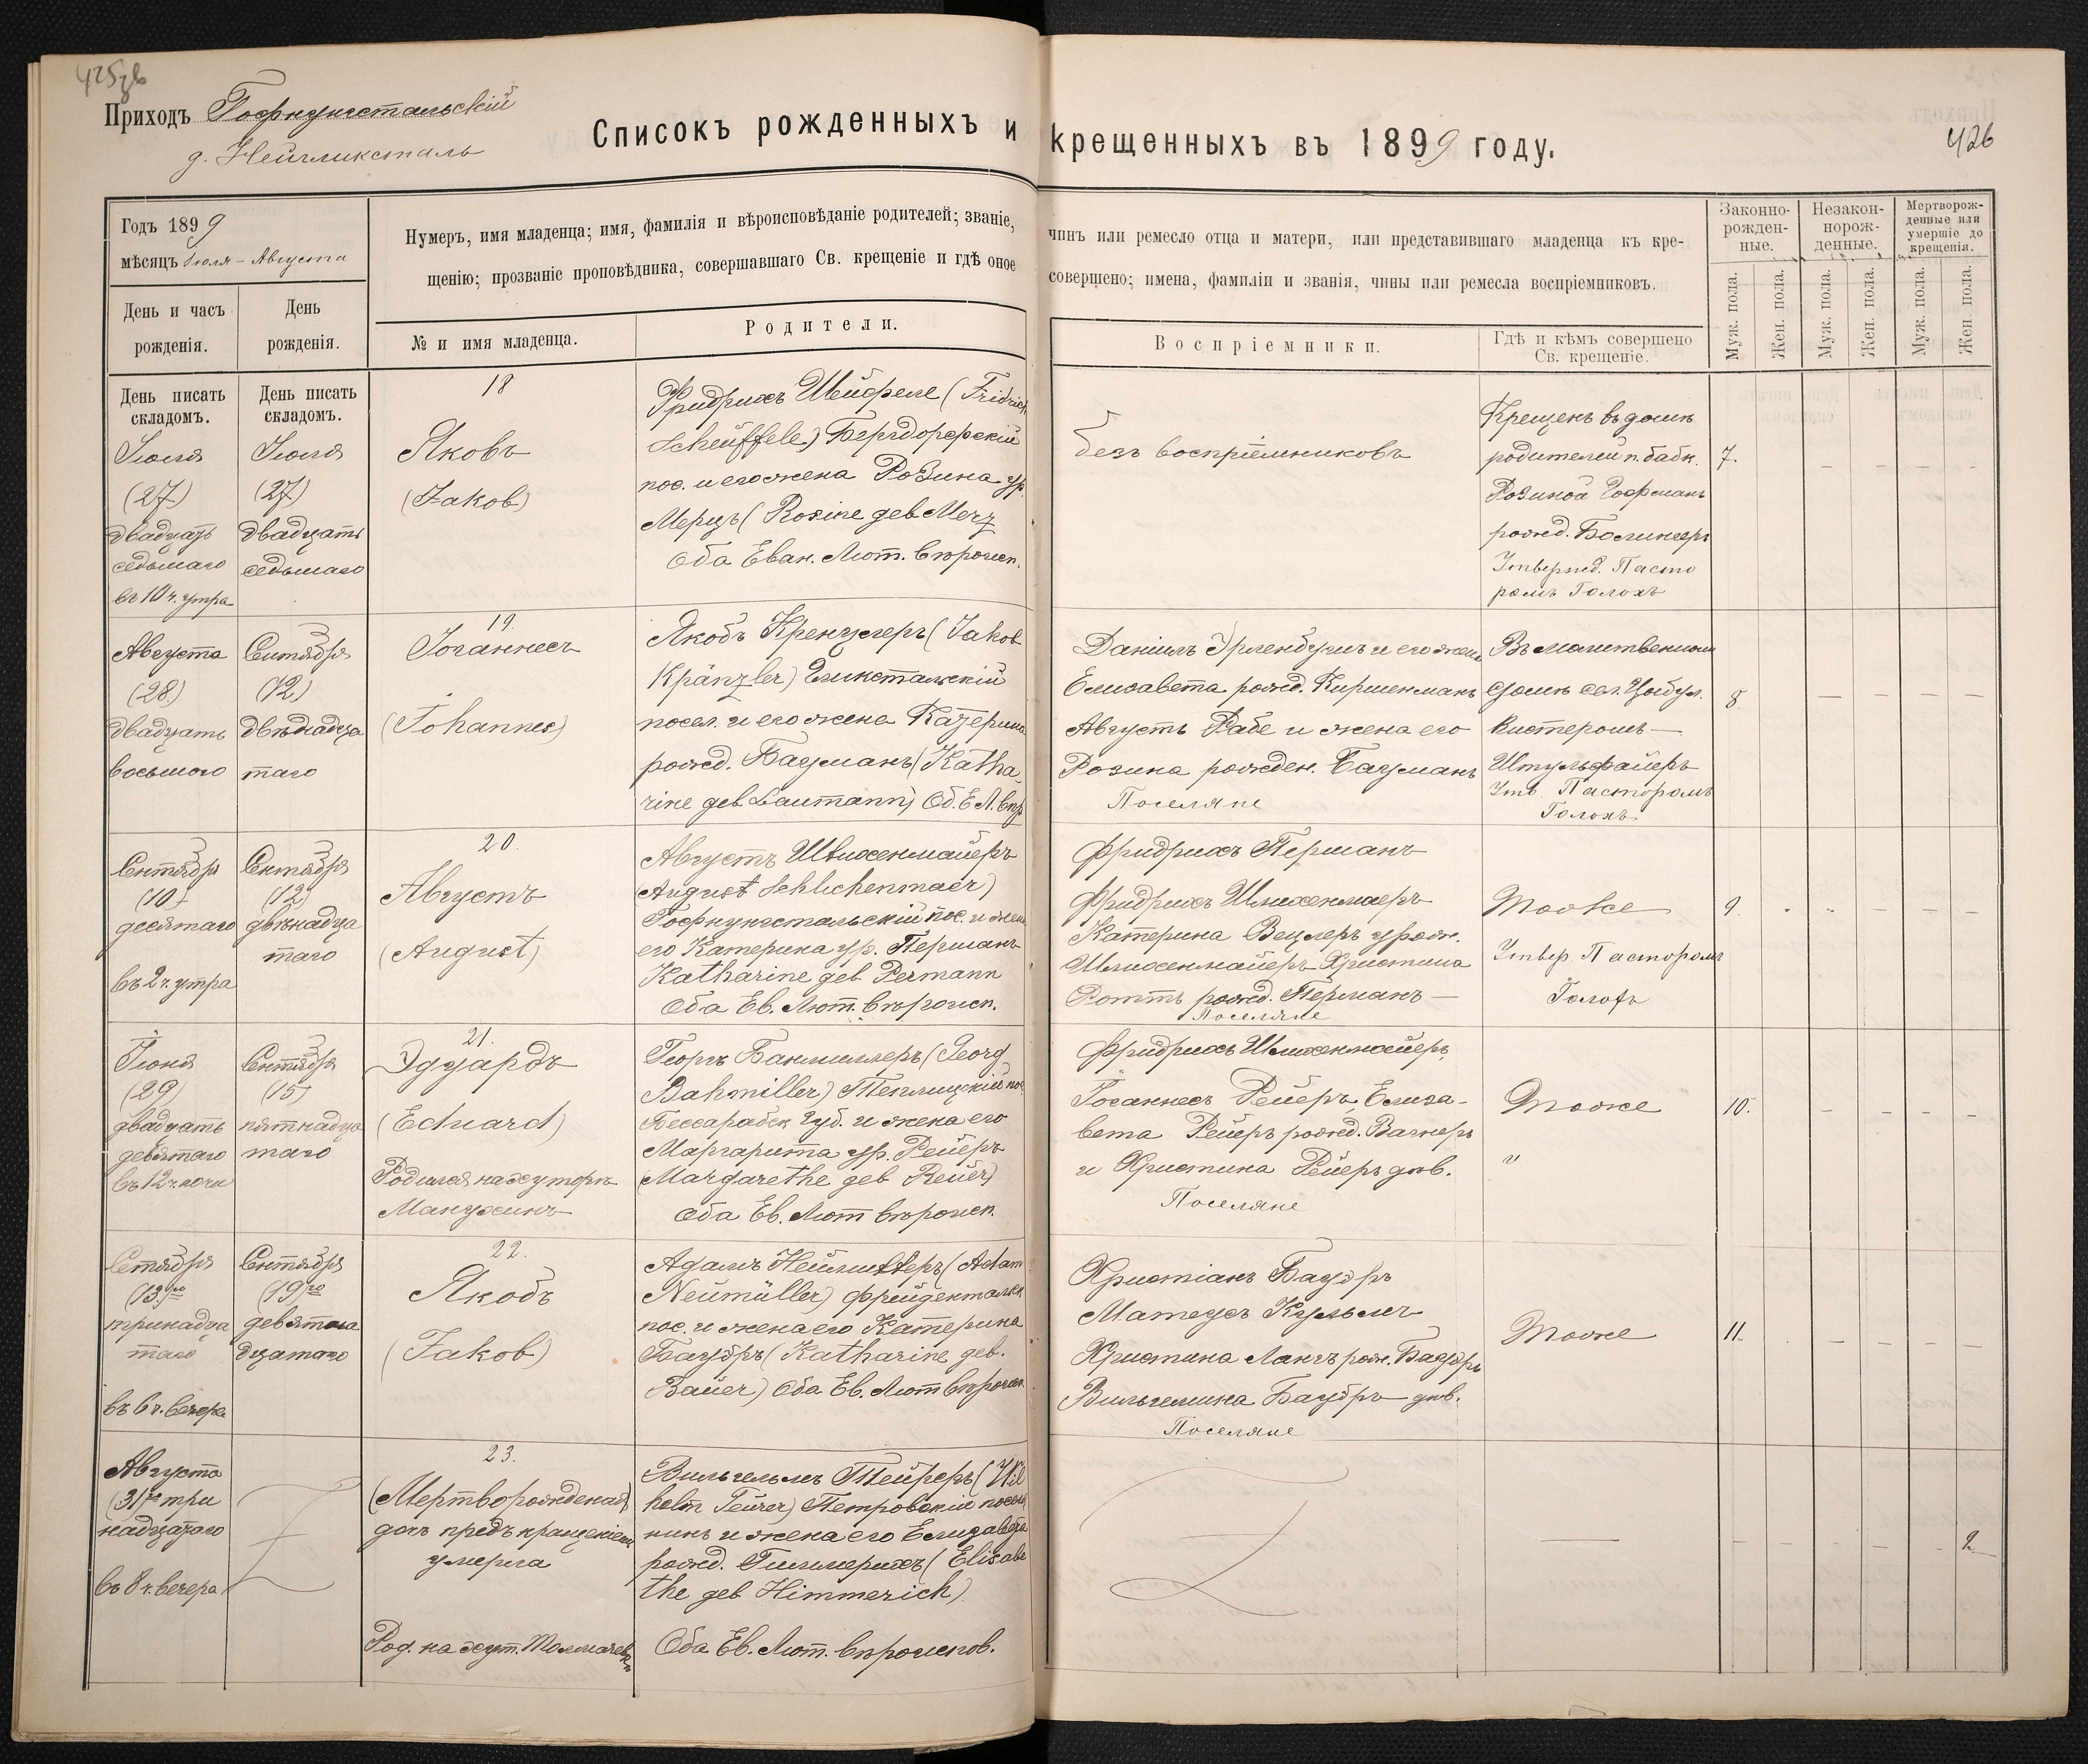 425зв
Приходъ Гофнунгстальскій
д. Нейгликсталь
Списокъ рожденныхъ и крещенныхъ въ 1899 году.
426
Годъ 1899
мѣсяцъ Іюля - Августа
День и часъ
рожденія.
День
рожденія.
Нумеръ, имя младенца; имя, фамилія и вѣроисповѣданіе родителей; званіе,
щенію; прозваніе проповѣдника, совершавшаго Св. крещеніе и гдѣ оное
№ и имя младенца.
Родители.
чинъ или ремесло отца и матери, или представившаго младенца къ кре-
совершено; имена, фамиліи и званія, чины или ремесла воспріемниковъ.
Воспріемники.
Гдѣ и кѣмъ совершено
Св. крещеніе.
Законно-
рожден-
ные.
Незакон-
норож-
денные.
Мертворож-
денные или
умершіе до
крещенія.
Муж. пола.
Жен. пола.
Муж. пола.
Жен. пола.
Муж. пола.
Жен. пола.
День писать
складомъ.
День писать
складомъ.
Іюля
(27)
двадцать
седьмаго
въ 10 ч. утра
Іюля
(27)
двадцать
седьмаго
18
Яковъ
(Jakob)
Фридрихъ Шейфеле (Fridrich
Scheuffele) Бергдорфскій
пос. и его жена Розина ур.
Мерцъ (Rosine geb Merz
Оба Еван. Лют. вѣроисп.
безъ воспріемниковъ
Крещенъ въ домѣ
родителей п. бабк.
Розиной Гофманъ
рожд. Болингеръ
Утвержд. Пасто
ромъ Голохъ
7.
Августа
(28)
двадцать
восьмого
Сентября
(12)
двѣнадца
таго
19.
Іоганнесъ
(Johannes)
Якобъ Кренцлеръ (Jakob
Kränzler) Гликстальскій
посел. и его жена Катерина
рожд. Бауманъ (Katha
rine geb Baumann) Об. Е. Л. вѣр
Даніилъ Эрленбушъ и его жена
Елизавета рожд. Киршенманъ
Августъ Рабе и жена его
Розина рожден. Бауманъ
Поселяне
Въ молитвенномъ
домѣ
Кистеромъ —
Штульфайеръ
Утв. Пасторомъ
Голохъ
8
Сентября
(10)
десятаго
въ 2 ч. утра
Сентября
(12)
двѣнадца
таго
20.
Августъ
(August)
Августъ Шлихенмайеръ
(August Schlichenmaer)
Гофнунгстальскій пос. и жена
его Катерина ур. Перманъ
Katharine geb Permann
Оба Ев. Лют. вѣроисп.
Фридрихъ Перманъ
Фридрихъ Шлихенмаеръ
Катерина Вецлеръ урожд.
Шлихенмайеръ Христина
Роттъ рожд. Перманъ —
Поселяне
Тоже
Утвер. Пасторомъ
Голохъ
9.
Іюня
(29)
двадцать
девятаго
въ 12 ч. ночи
Сентября
(15)
пятнадца
таго
21.
Эдуардъ
(Eduard)
Родился на хуторѣ
Манухинъ
Георгъ Банмиллеръ (Georg
Bahmiller) Теплицкій пос.
Бессарабск. Губ. и жена его
Маргарита ур. Рейеръ
(Margarethe geb Reuer)
Оба Ев. Лют вѣроисп.
Фридрихъ Шлихенмайеръ,
Іоганнесъ Рейеръ, Елиза-
вета Рейеръ рожд. Вагнеръ
и Христина Рейеръ дѣв.
Поселяне
Тоже
"
10.
Сетября
(13го
тринадца
таго
въ 6 ч. вечера
Сентября
(19го
девятна
дцатаго
22.
Якобъ
(Jakob)
Адамъ Неймиллеръ (Adam
Neumüller) Фрейдентальск
пос. и жена его Катерина
Бауэръ (Katharine geb.
Bauer) Оба Ев. Лют вѣроисп.
Христіанъ Бауэръ
Матеусъ Кульмъ
Христина Лангъ рож. Бауэръ
Вильгелмина Бауэръ дѣв.
Поселяне
Тоже
11.
Августа
(31го три
надцатаго
въ 8 ч. вечера
23.
(Мертворожденая
дочь предъ крещеніемъ
умерла
Род. на хут.
Вильгельмъ Тейреръ (Wil
helm Teurer) Петровскій посел
нинъ и жена его Елизавета
рожд. Гиммерихъ (Elisabe
the geb Himmerich)
Оба Ев. Лют. вѣроиспов.
2